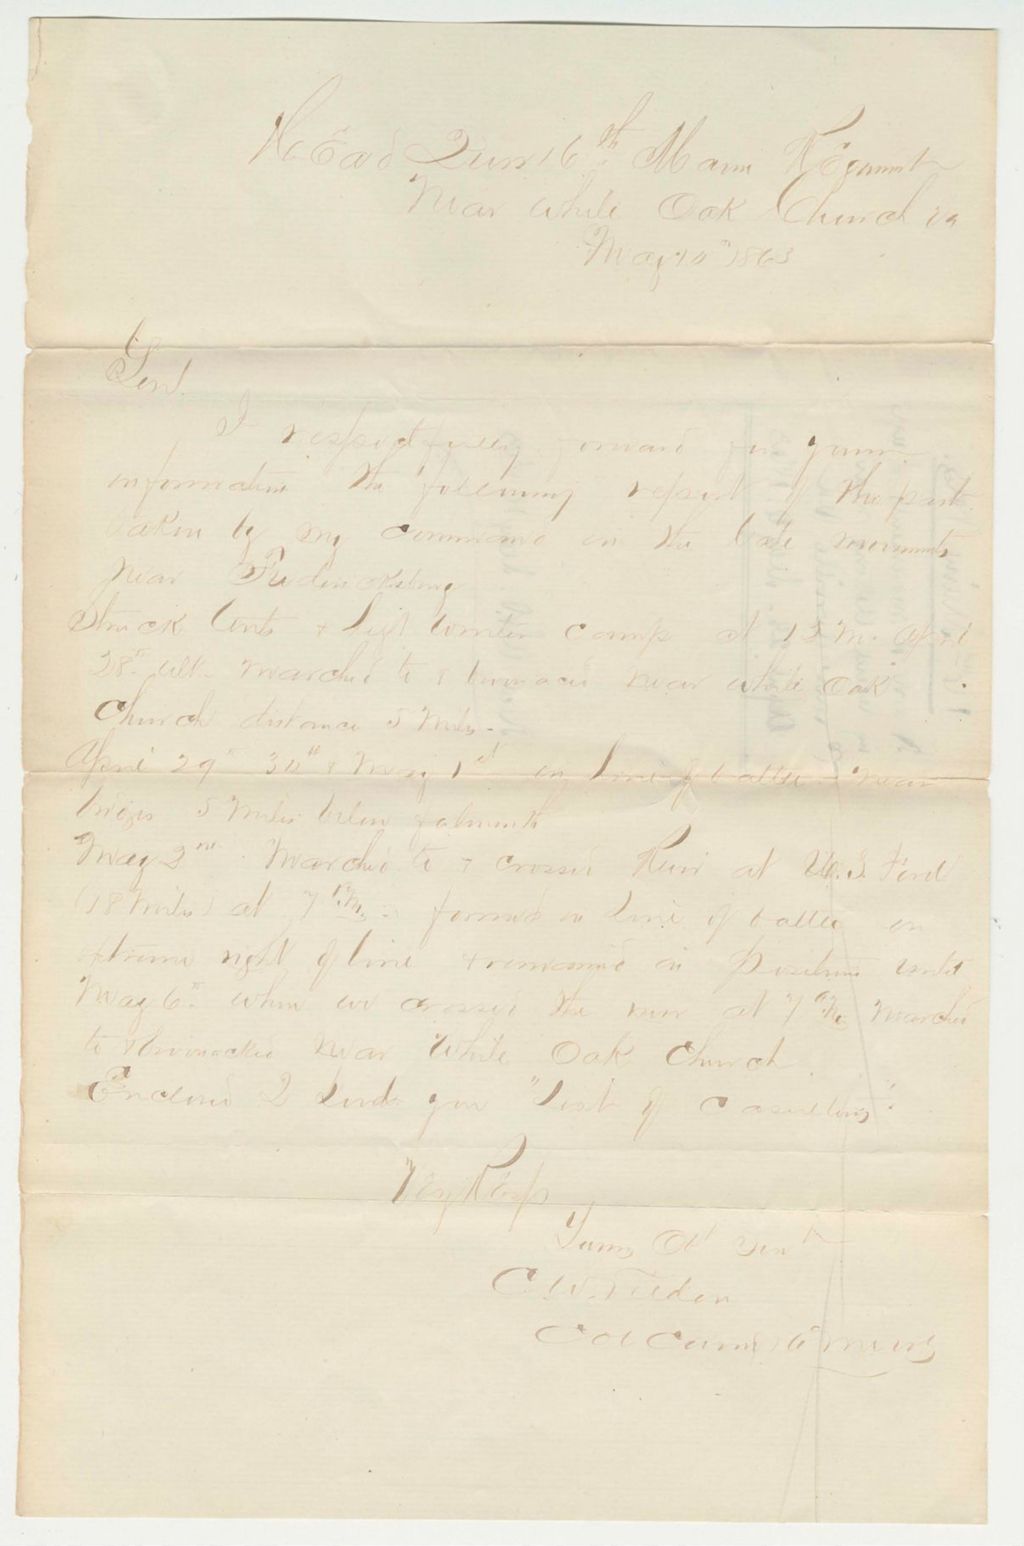 Head Qurs 16th Maine Regiment
Near White Oak Church Va
May 10" 1863
Genl.
I respectfully forward for your
information the following report of the part
taken by my command in the late movements
near Fredericksburg
Struck tents & left winter camp at 12 M. April
28th ult. Marched to & bivouaced near White Oak
Church distance 5 Miles.
April 29th 30th & May 1st in line of battle near
bridges 5 Miles below Falmouth
May 2nd. Marched to & crossed River at U.S. Ford
(18 Miles) at 7 P.M. formed in line of battle on
extreme right of line & remained in position until
May 6th when we crossed the river at 7 AM marched
to & bivouacked near White Oak Church
Enclosed I send you "List of Casualties"
Very Resp
Your Obt Servt
C W Tilden
Col Comd 16 Me Vols